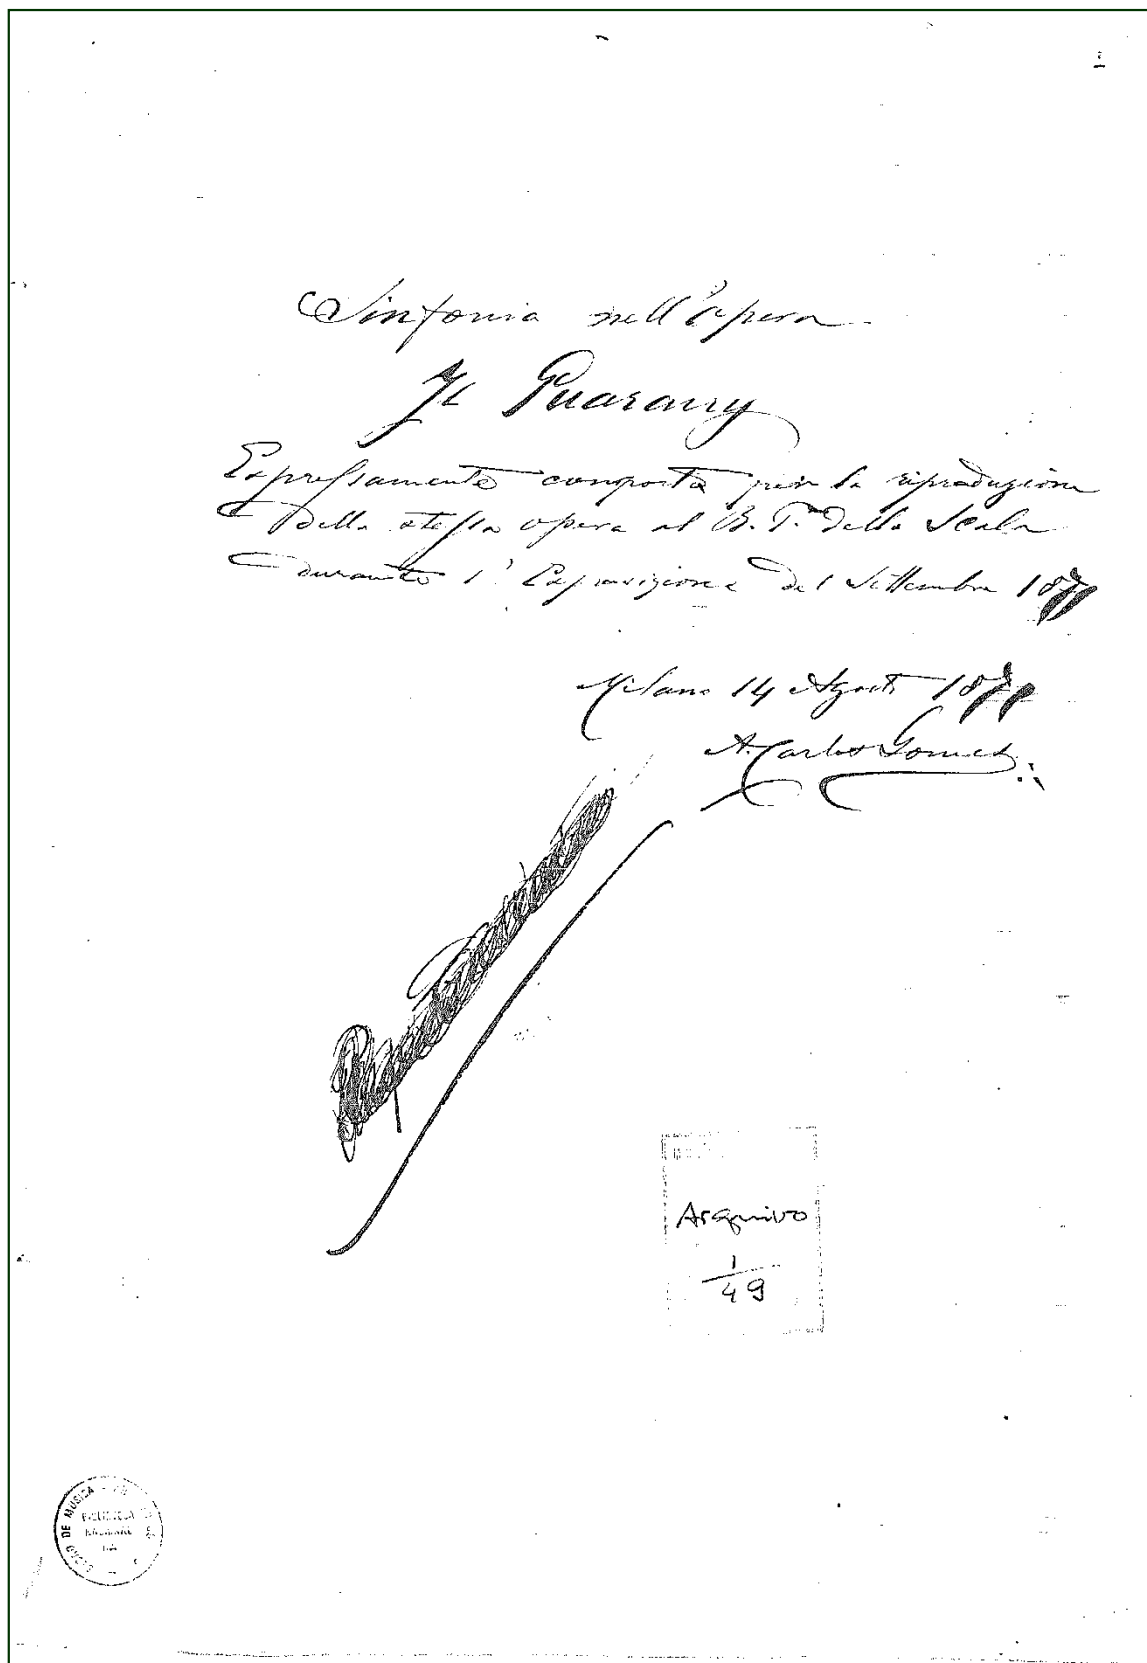 1
Sinfonia nell'opera
Il Guarany
Espressamente composta per la riproduzione
della stessa opera al R. T. della Scala
durante l'Esposizione del Settembre 187
Milano 14 Agosto 187
A. Carlos Gomes
Arquivo
1
49
DE MUSICA
BIBLIOTECA